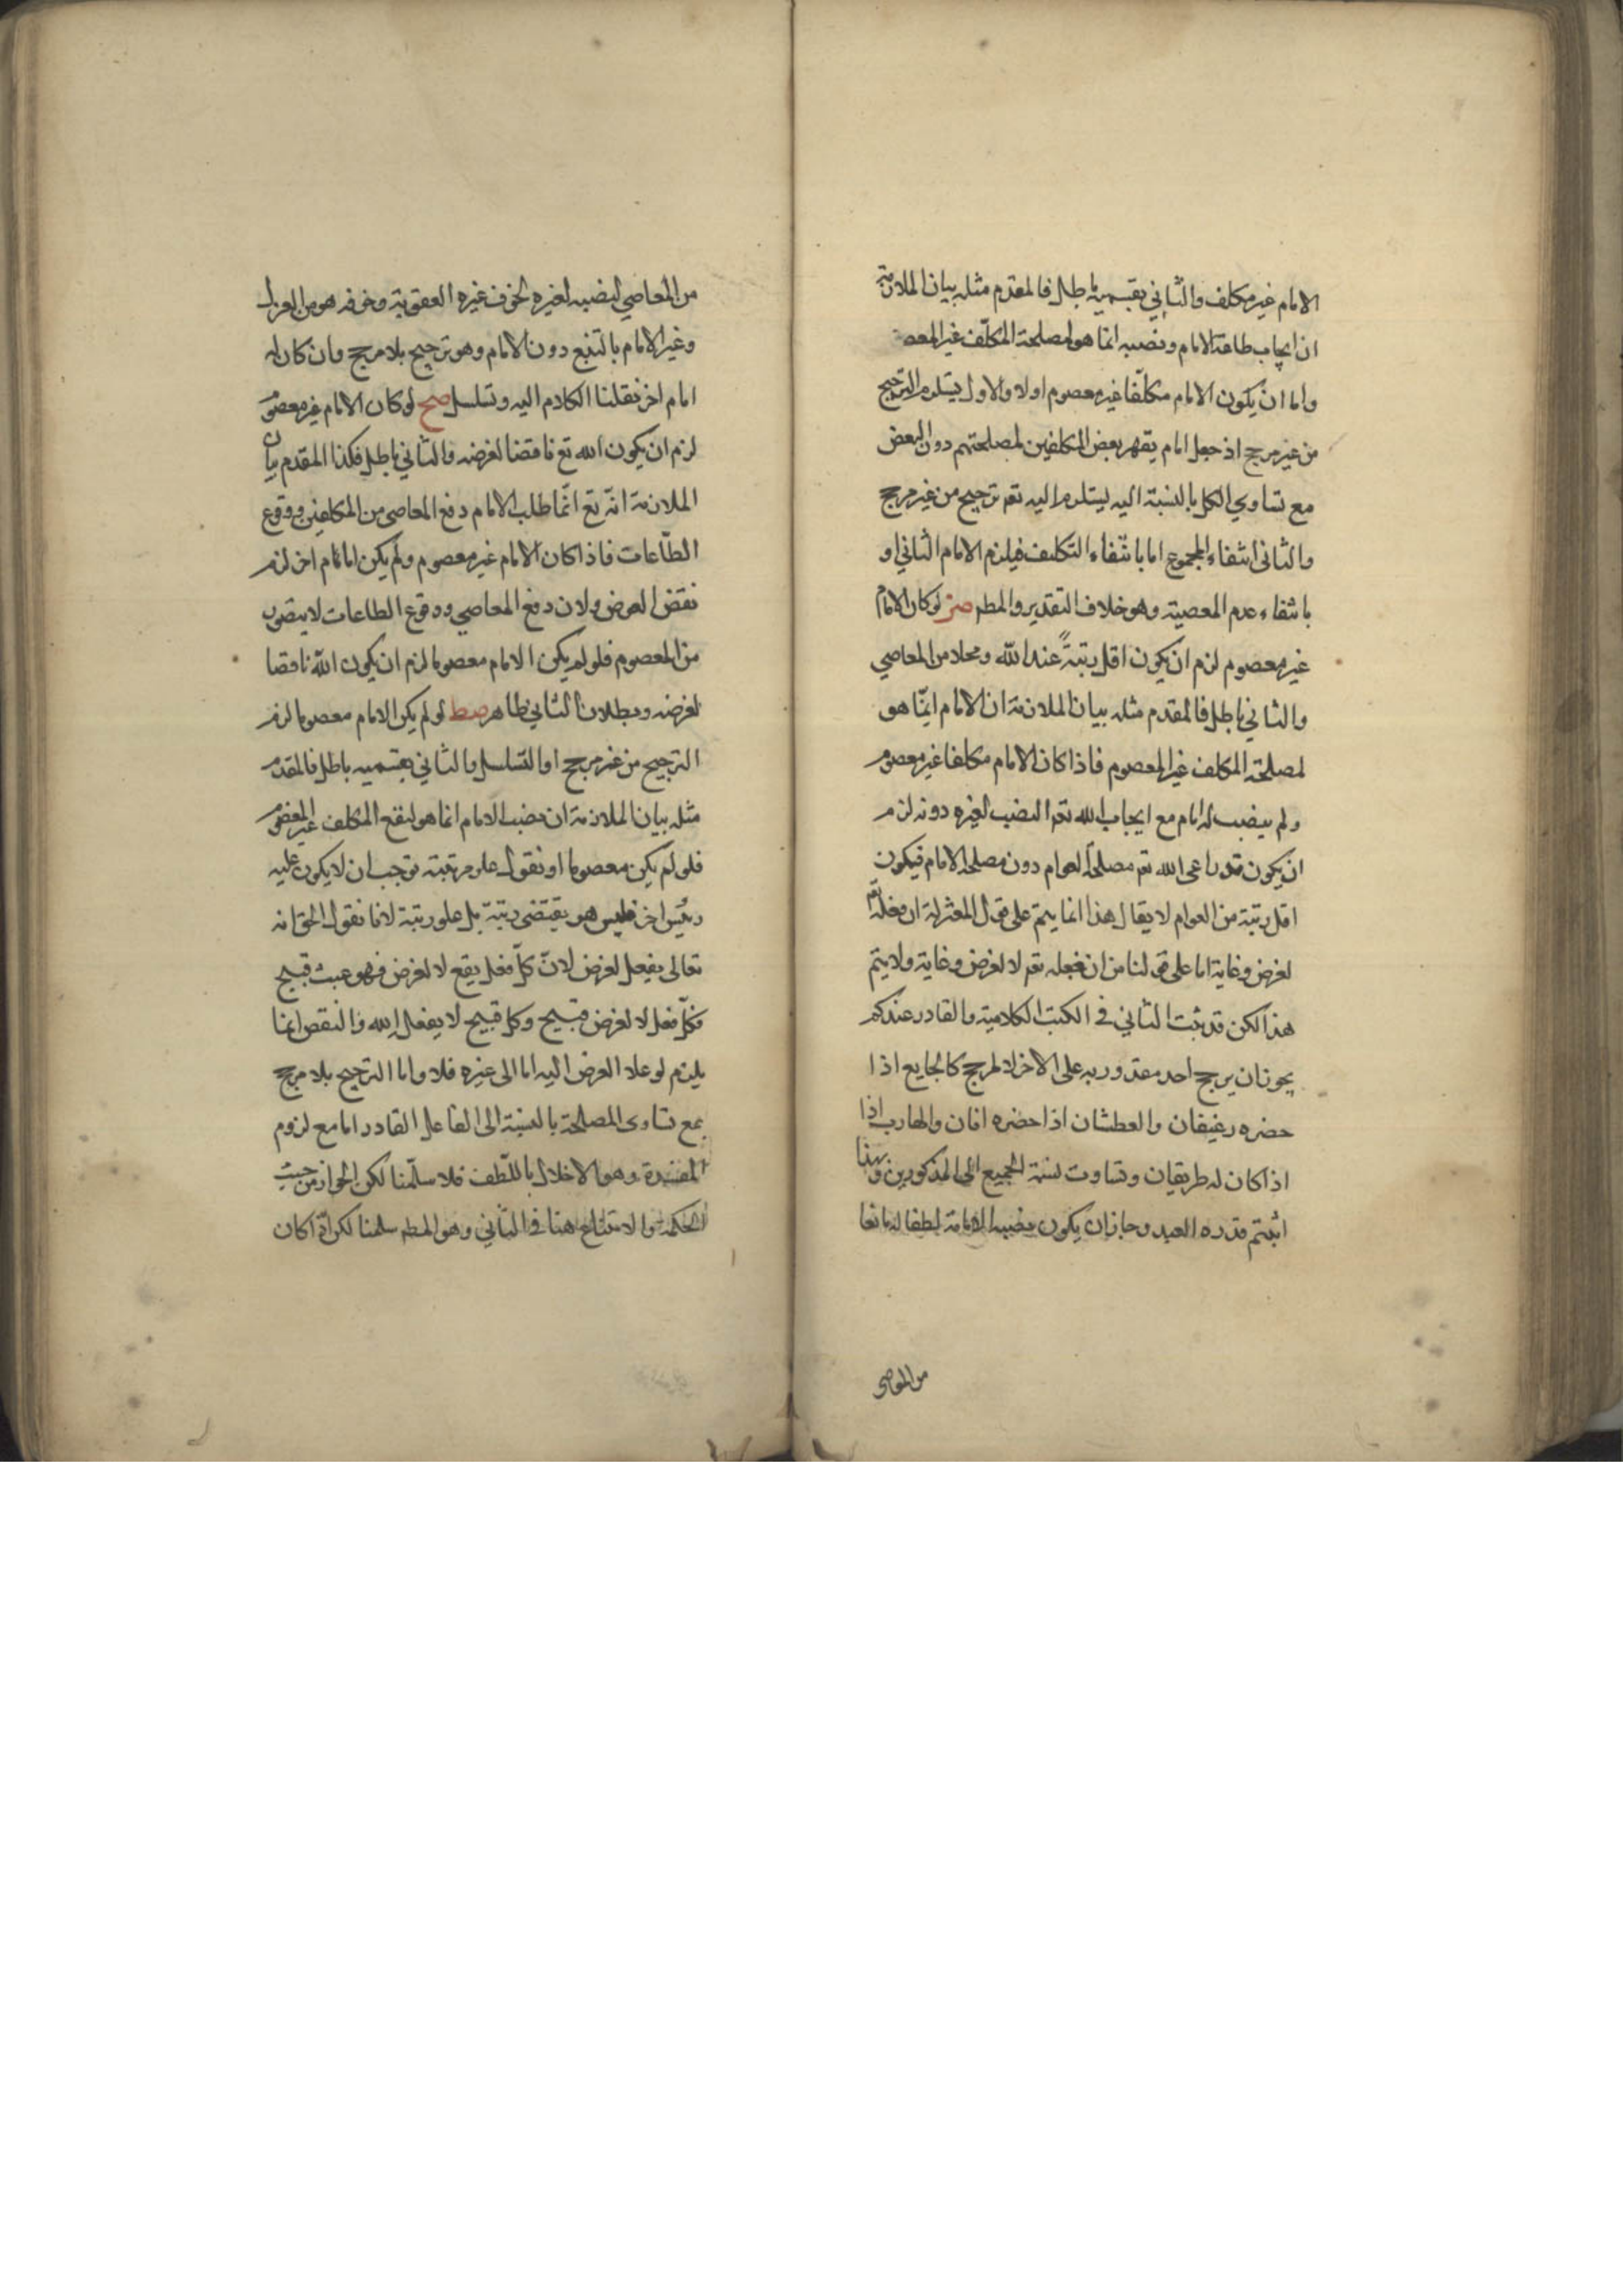 الامام غير مكلف والثاني بقسميه باطل فالمقدم مثله بيان الملازمة
ان ايجاب طاعة الامام ونصبه انما هو لمصلحة المكلّف غير المعصو
واما ان يكون الامام مكلّفا غير معصوم اولا والاول يستلزم الترجيح
من غير مرجح اذ جعل امام يقهر بعض المكلفين لمصلحتهم دون البعض
مع تساوي الكل بالنسبة اليه يستلزم اليه تعم ترجيح من غير مرجح
والثاني انتفاء المجموع اما بانتفاء التكليف فيلزم الامام الثاني او
بانتفاء عدم المعصية وهو خلاف التقدير والمطم صز لو كان الامام
غير معصوم لزم ان يكون اقل رتبةً عند الله ومحلا من المعاصي
والثاني باطل فالمقدم مثله بيان الملازمة ان الامام انّما هو
لمصلحة المكلف غير المعصوم فاذا كان الامام مكلفا غير معصوم
ولم ينصب له امام مع ايجاب الله تعم النصب لغيره دونه لزم
ان يكون قد راعى الله تعم مصلحة العوام دون مصلحة الامام فيكون
اقل رتبة من العوام لا يقال هذا انما يتم على قول المعتزلة ان فعله تعم
لغرض وغاية اما على قولنا من ان فعله تعم لا لغرض وغاية ولا يتم
هذا لكن قد ثبت الثاني في الكتب الكلامية والقادر عندكم
يجوز ان يرجح احد مقدوريه على الاخر لا لمرجح كالجايع اذا
حضره رغيفان والعطشان اذا حضره اناان والهارب اذا
اذا كان له طريقان وتساوت نسبة الجميع الى المذكورين وبهذا
اثبتم قدره العبد وجاز ان يكون نصبه الامامة لطفا له مانعا
من المعاصي
من المعاصي لنصبه لغيره لخوف غيره العقوبة وخوفه هو من العزل
وغير الامام بالتبع دون الامام وهو ترجيح بلا مرجح وان كان له
امام اخر نقلنا الكلام اليه وتسلسل صح لو كان الامام غير معصوم
لزم ان يكون الله تع ناقضا لغرضه والثاني باطل فكذا المقدم بيان
الملازمة انّه تع انّما طلب الامام دفع المعاصى من المكلفين ووقوع
الطّاعات فاذا كان الامام غير معصوم ولم يكن امامام اخر لزم
نقض الغرض ولان دفع المعاصي ووقوع الطاعات لا يتصور
من المعصوم فلو لم يكن الامام معصوما لزم ان يكون الله ناقضا
لغرضه وبطلان الثاني ظاهر صط لو لم يكن الامام معصوما لزم
الترجيح من غير مرجح او التسلسل والثاني بقسميه باطل فالمقدم
مثله بيان الملازمة ان نصب الامام انما هو لنفع المكلف غير المعصوم
فلو لم يكن معصوما او نقول علو مرتبته توجب ان لا يكون عليه
رئيس اخر فليس هو يقتضى رتبة بل علو رتبة لانا نقول الحق انه
تعالى يفعل لغرض لانّ كلّ فعل يقع لا لغرض فهو عبث قبيح
فكلّ فعل لا لغرض قبيح وكل قبيح لا يفعل الله والنقص انما
يلزم لو علا الغرض اليه اما الى غيره فلا واما الترجيح بلا مرجح
بمع تساوى المصلحة بالنسبة الى الفاعل القادر اما مع لزوم
المفسدة وهو الاخلال باللّطف فلا سلّمنا لكن الجواز من حيث
الحكمة والامتناع هنا في الثاني وهو المطم سلمنا لكن اذا كان